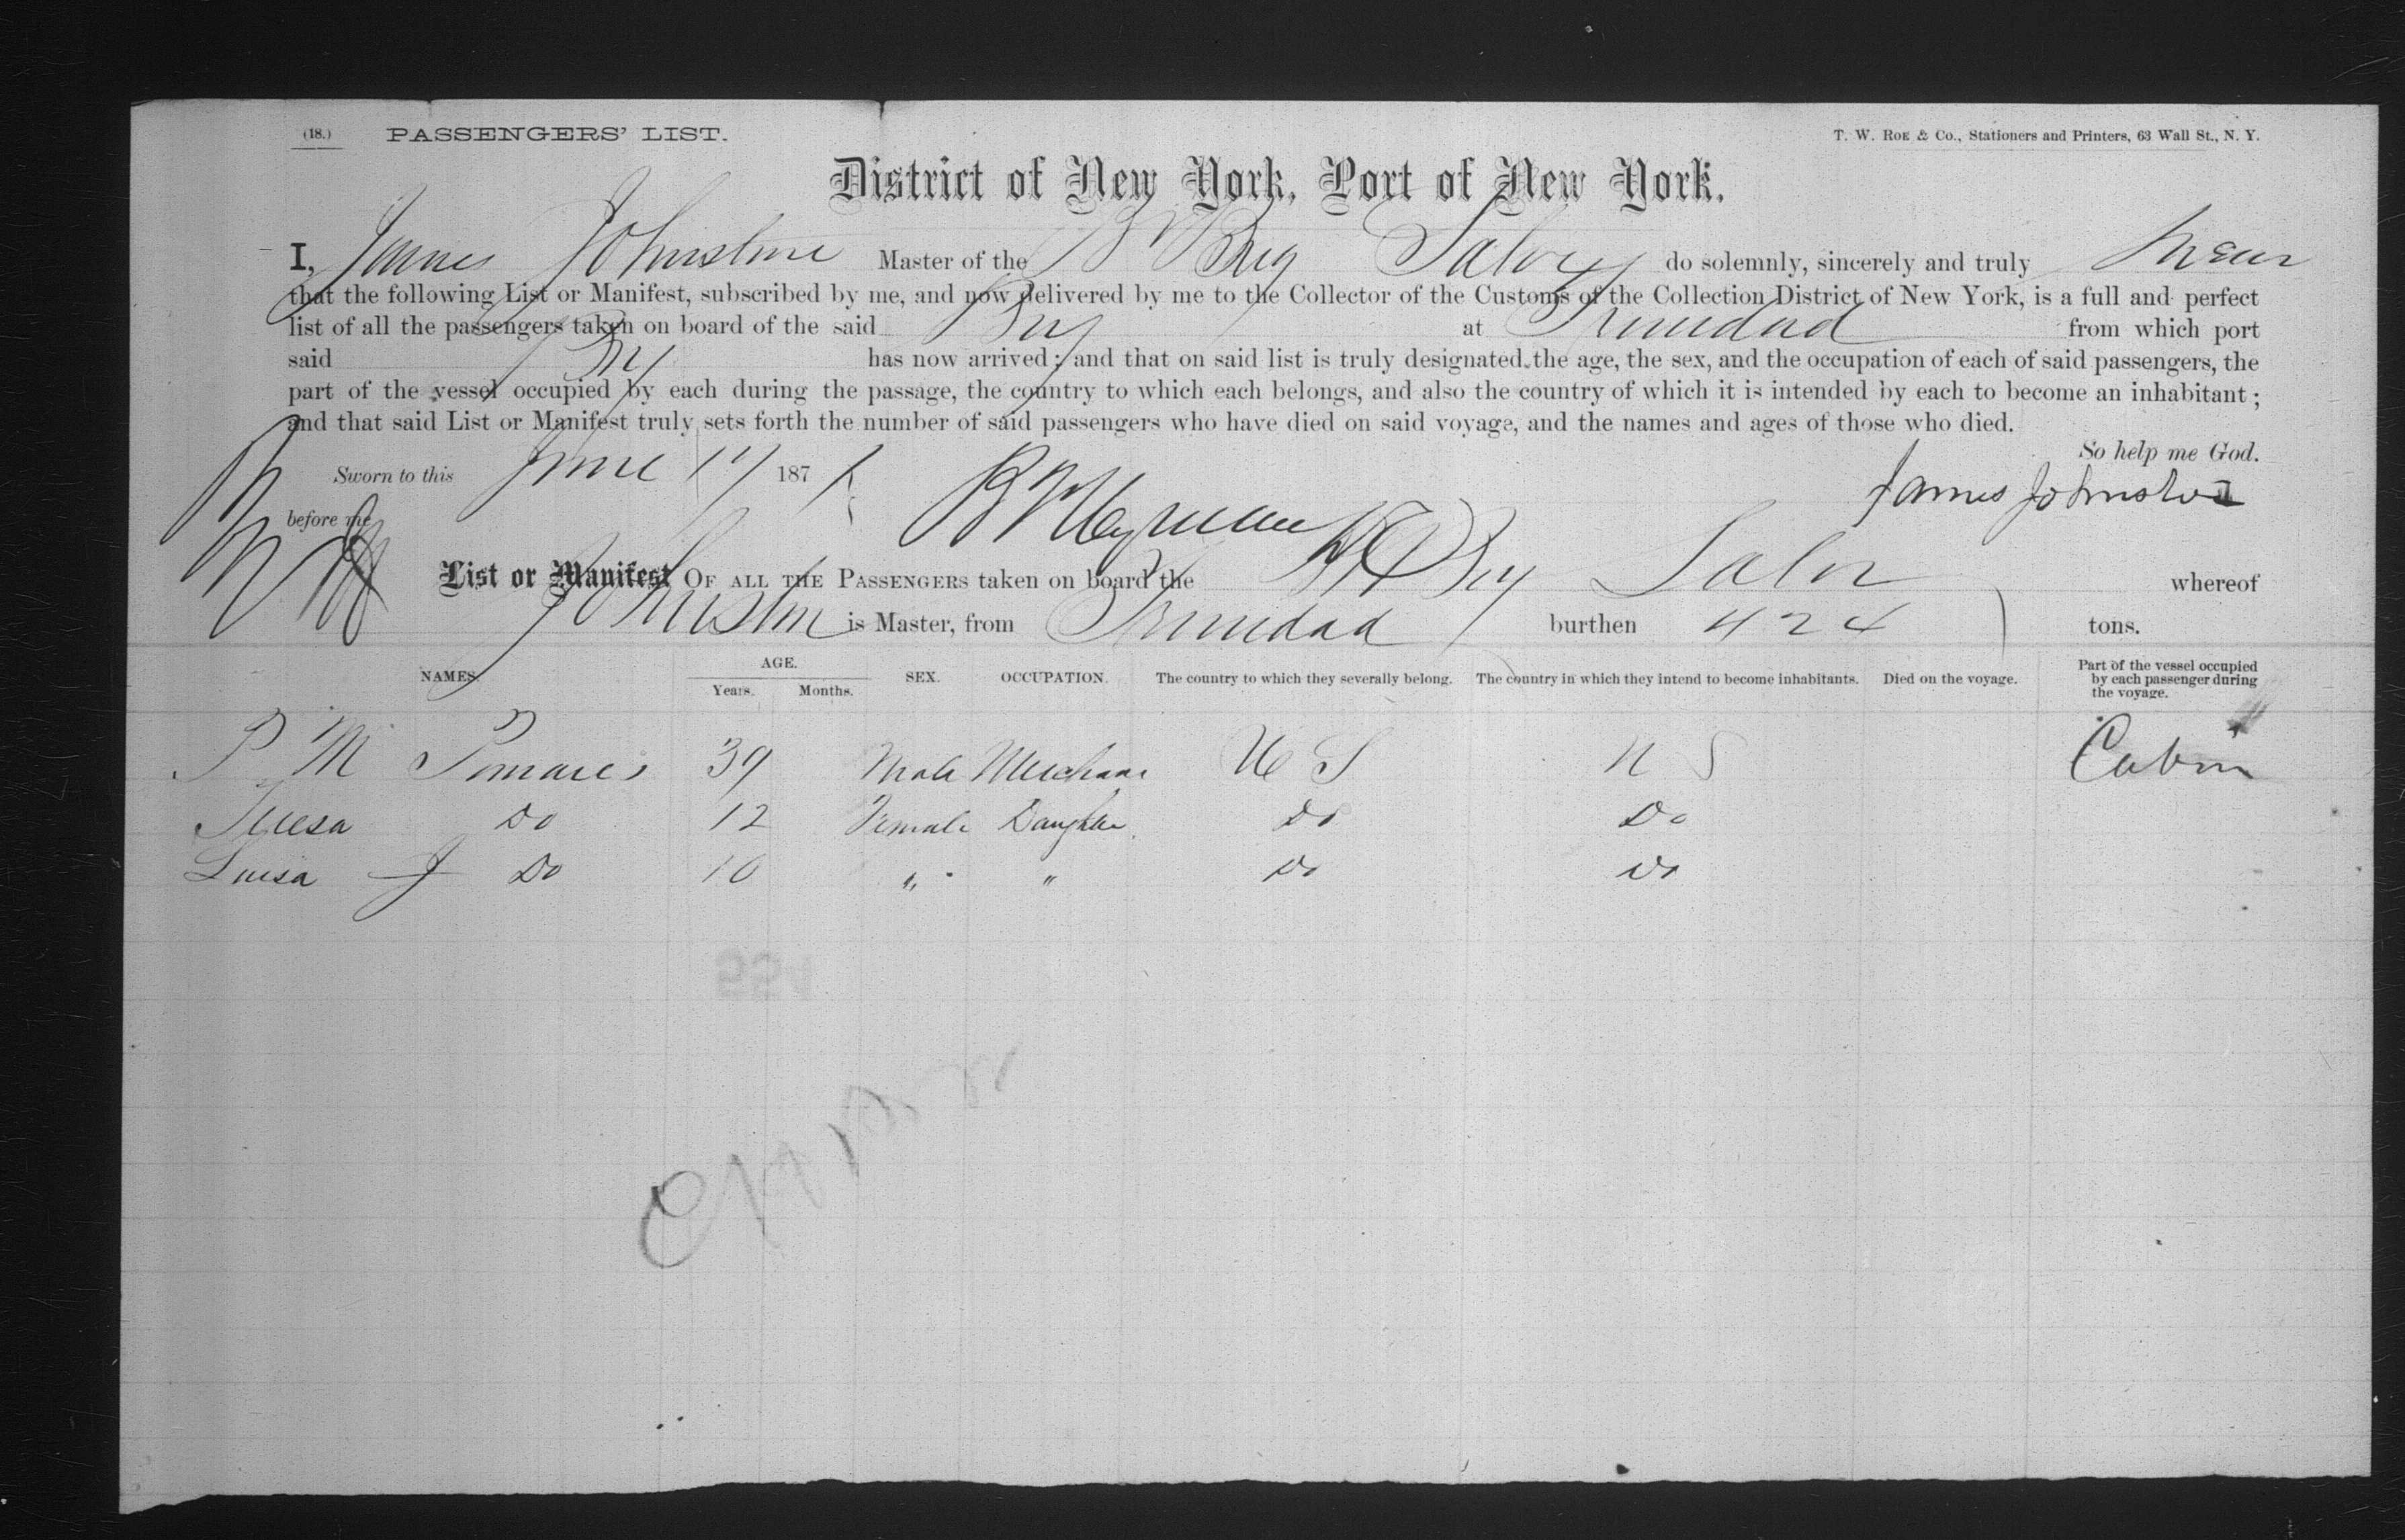 (18.) PASSENGERS' LIST. T. W. ROE & Co., Stationers and Printers, 63 Wall St., N. Y.
District of New York, Port of New York.
I, James Johnstone Master of the Brig do solemnly, sincerely and truly swear
that the following List or Manifest, subscribed by me, and now delivered by me to the Collector of the Customs of the Collection District of New York, is a full and perfect
list of all the passengers taken on board of the said Brig at Trinidad from which port
said Brig has now arrived; and that on said list is truly designated the age, the sex, and the occupation of each of said passengers, the
part of the vessel occupied by each during the passage, the country to which each belongs, and also the country of which it is intended by each to become an inhabitant;
and that said List or Manifest truly sets forth the number of said passengers who have died on said voyage, and the names and ages of those who died.
So help me God.
Sworn to this June 17 187
James Johnston
before me
List or Manifest OF ALL THE PASSENGERS taken on board the Brig whereof
Johnston is Master, from Trinidad burthen 424 tons.
NAMES. AGE. Years. Months. SEX. OCCUPATION. The country to which they severally belong. The country in which they intend to become inhabitants. Died on the voyage. Part of the vessel occupied by each passenger during the voyage.
P M 39 Male Merchant U S U S Cabin
Teresa Do 12 Female Daughter Do Do
Luisa J Do 10 " " Do Do